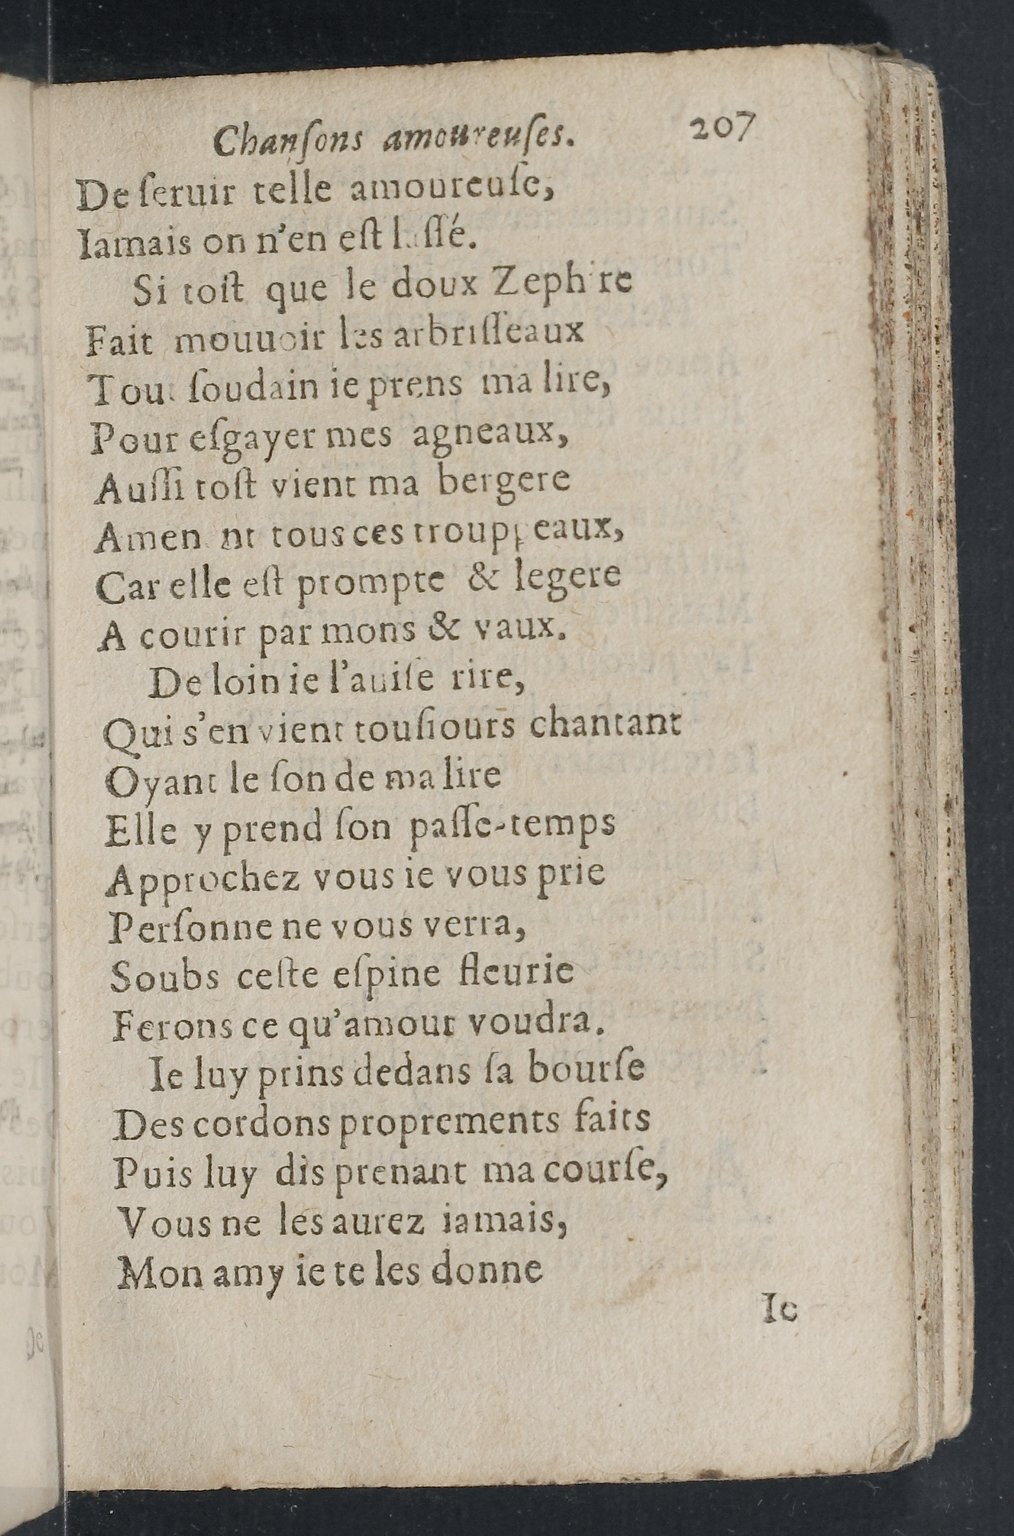 Chanſons amoureuſes. 207
De ſeruir telle amoureuſe,
Iamais on n'en eſt laſſé.
Si toſt que le doux Zephire
Fait mouuoir les arbriſſeaux
Tout ſoudain ie prens ma lire,
Pour eſgayer mes agneaux,
Auſſi toſt vient ma bergere
Amenant tous ces trouppeaux,
Car elle eſt prompte & legere
A courir par mons & vaux.
De loin ie l'auiſe rire,
Qui s'en vient touſiours chantant
Oyant le ſon de ma lire
Elle y prend ſon paſſe-temps
Approchez vous ie vous prie
Perſonne ne vous verra,
Soubs ceſte eſpine fleurie
Ferons ce qu'amour voudra.
Ie luy prins dedans ſa bourſe
Des cordons proprements faits
Puis luy dis prenant ma courſe,
Vous ne les aurez iamais,
Mon amy ie te les donne
Ie